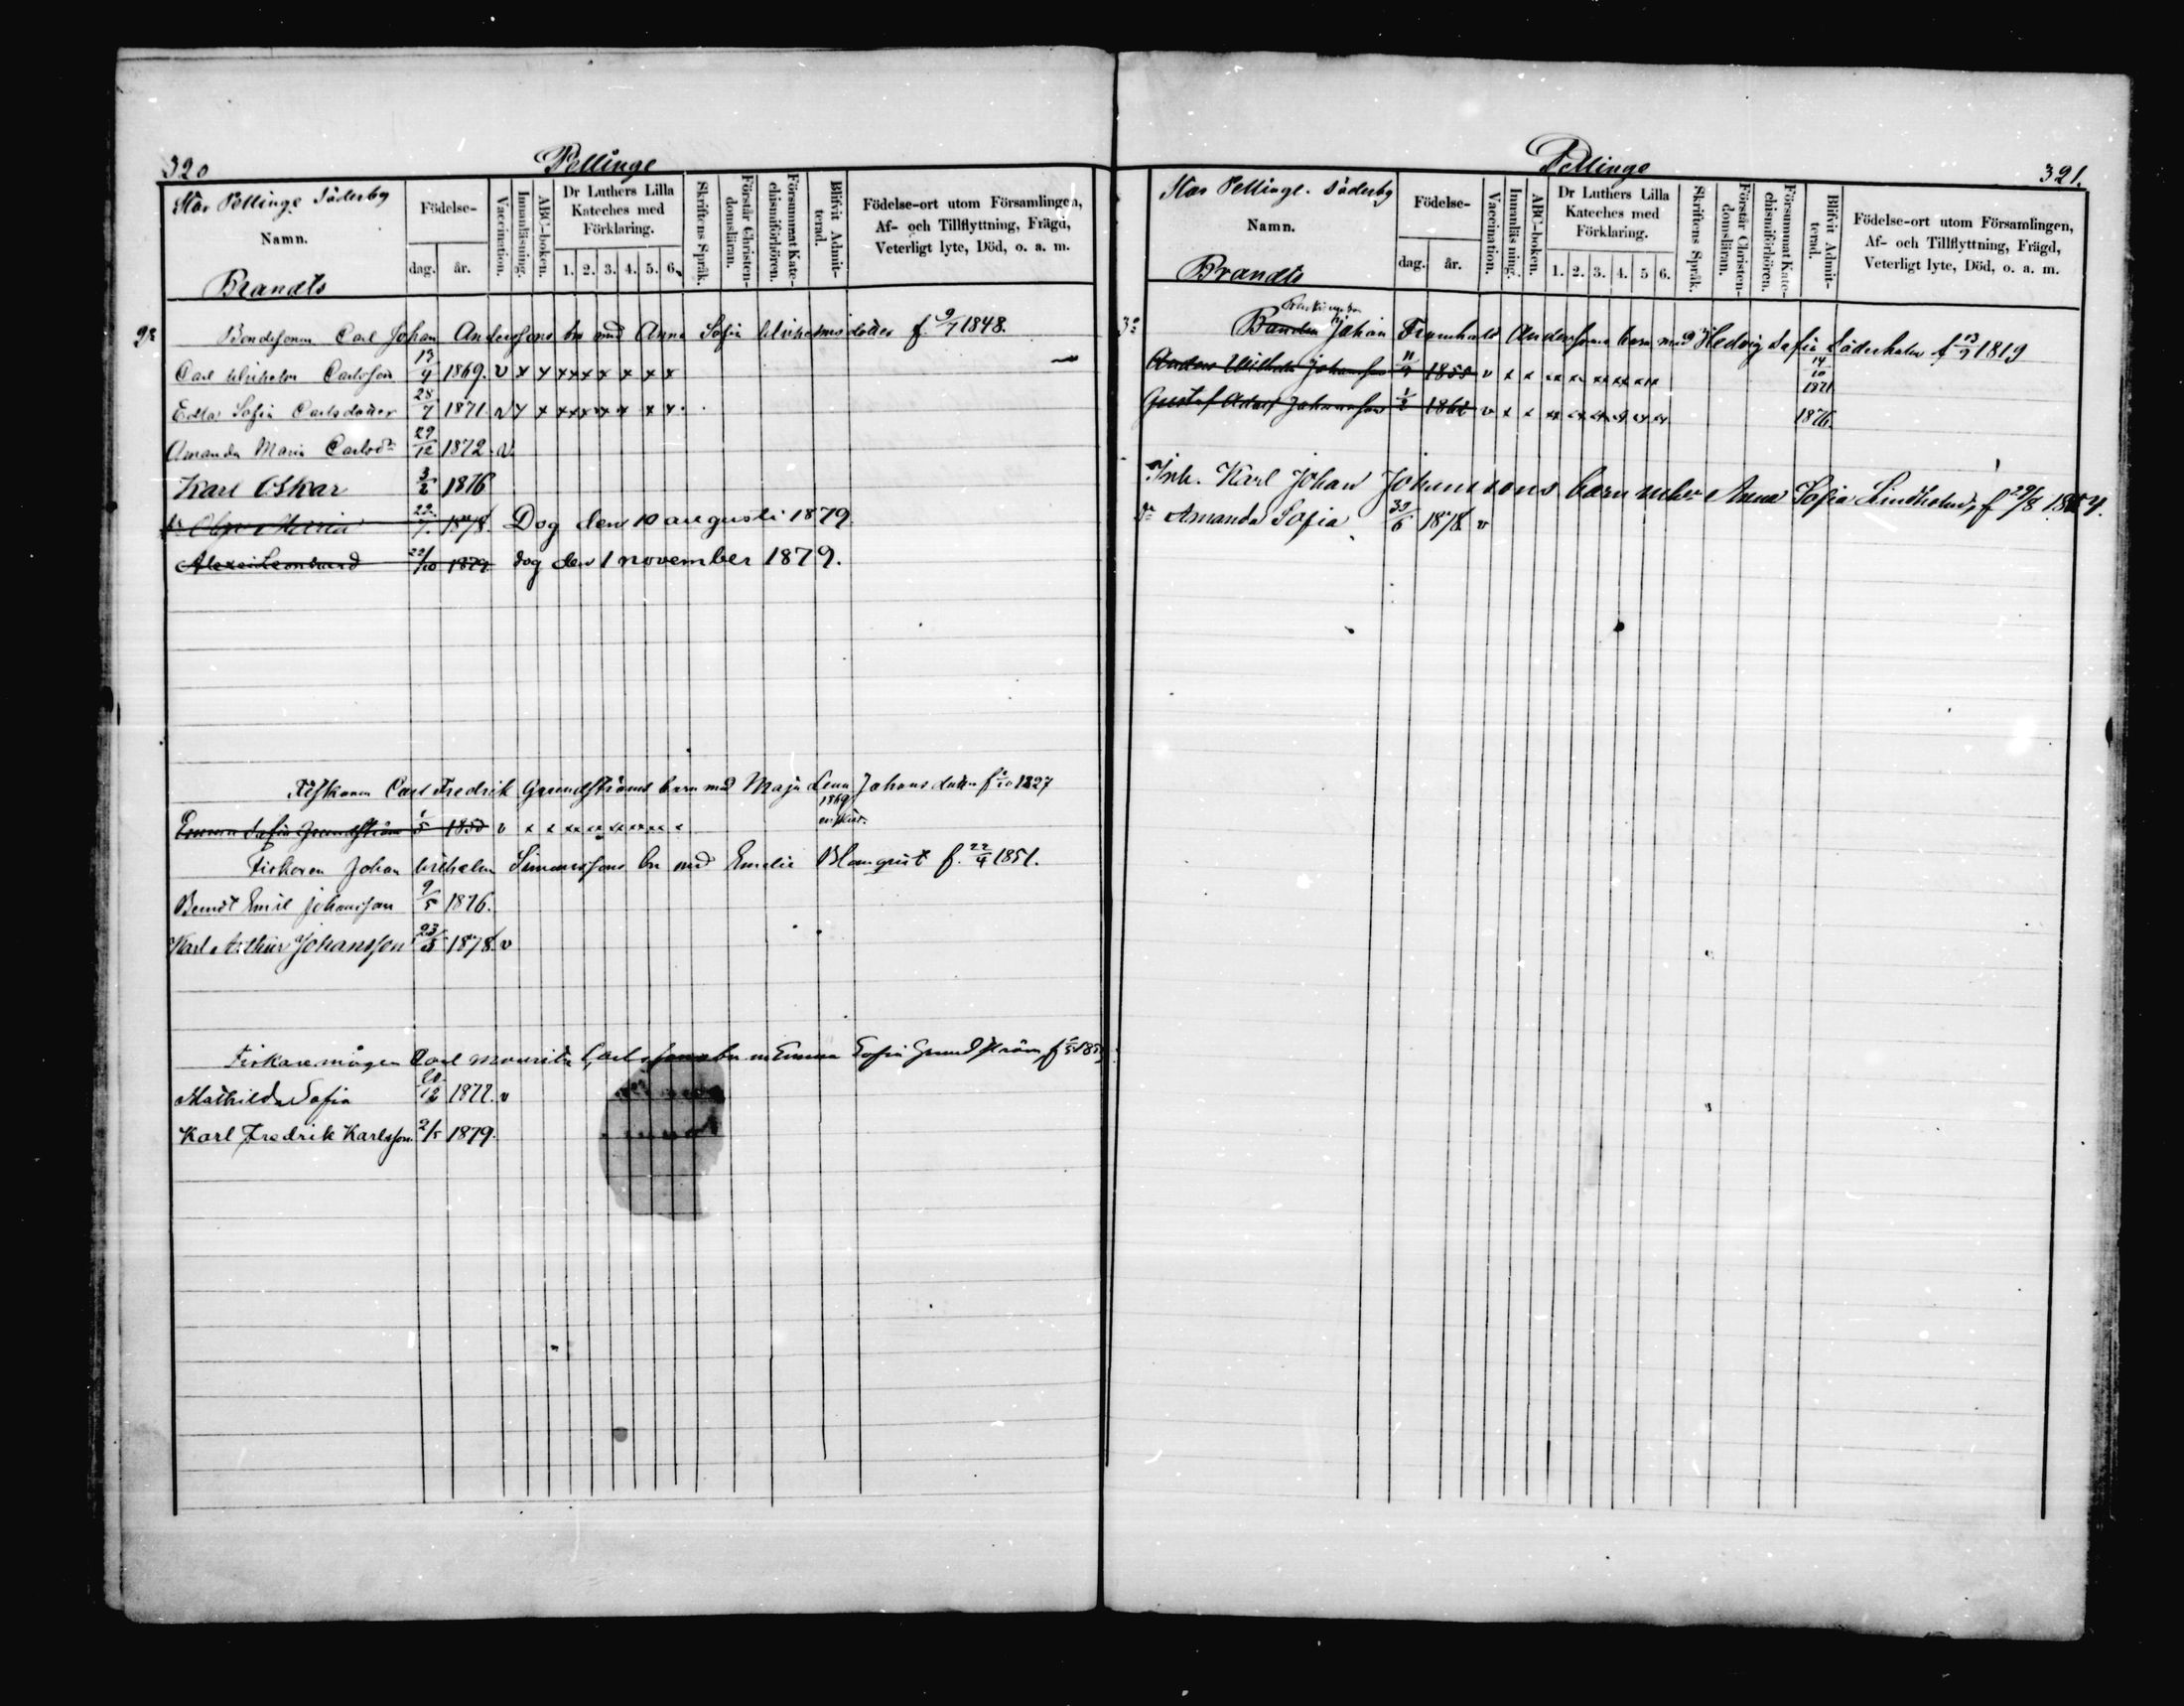 320
Pellinge
Stor Pellinge Söderby
Namn.
Brandts
Födelse-
dag. år.
Vaccination.
Innanläsning.
ABC-boken.
Dr Luthers Lilla
Kateches med
Förklaring.
1. 2. 3. 4. 5. 6.
Skriftens Språk.
Förstår Christen-
domsläran.
Försummat Kate-
chismiförhören.
Blifvit Admit-
terad.
Födelse-ort utom Församlingen,
Af- och Tillflyttning, Frägd,
Veterligt lyte, Död, o. a. m.
Bondesonen Carl Johan Anderssons bn med Anna Sofia Wilhelmsdotter f. 9/7 1848.
Carl Wilhelm Carlsson 13/4 1869. v x x x x x x x x x
Edla Sofia Carlsdotter 28/7 1871 v x x x x x x x x x
Amanda Maria Carlsdr 29/12 1872. v
Karl Oskar 3/2 1876
Olga Maria 22/7 1878. Dog den 10 augusti 1879.
Alexis Leonhard 22/10 1879 dog den 1 november 1879.
Fiskaren Carl Fredrik Grundströms barn med Maja Lena Johansdotter f 10 1827
Emma Sofia Grundström /5 1850 v x x x x x x x x x 1869
Fiskaren Johan Wilhelm Simonssons bn med Emelie Blomqvist f. 22/4 1851.
Berndt Emil Johansson 9/5 1876.
Karl Arthur Johansson 23/3 1878. v
Fiskaremågen Carl Mauritz Carlssons bn m Emma Sofia Grundström f /5 185
Mathilda Sofia 20/12 1877. v
Karl Fredrik Karlsson. 2/5 1879.
Pellinge
321.
Stor Pellinge. Söderby
Namn.
Brandts
Födelse-
dag. år.
Vaccination.
Innanläsning.
ABC-boken.
Dr Luthers Lilla
Kateches med
Förklaring.
1. 2. 3. 4. 5 6.
Skriftens Språk.
Förstår Christen-
domsläran.
Försummat Kate-
chismiförhören.
Blifvit Admit-
terad.
Födelse-ort utom Församlingen,
Af- och Tillflyttning, Frägd,
Veterligt lyte, Död, o. a. m.
Bonden Johan Frumhold Anderssons barn med Hedvig Sofia Söderholm f 13/9 1819
Anders Wilhelm Johansson 11/9 1855 v x x x x x x x x x x 14/10 1871
Gustaf Adolf Johansson 1/2 1862 v x x x x x x x x x 1876.
Inh. Karl Johan Johanssons barn m. Anna Sofia Lindholm, f 29/8 1854.
dr Amanda Sofia 30/6 1878 v